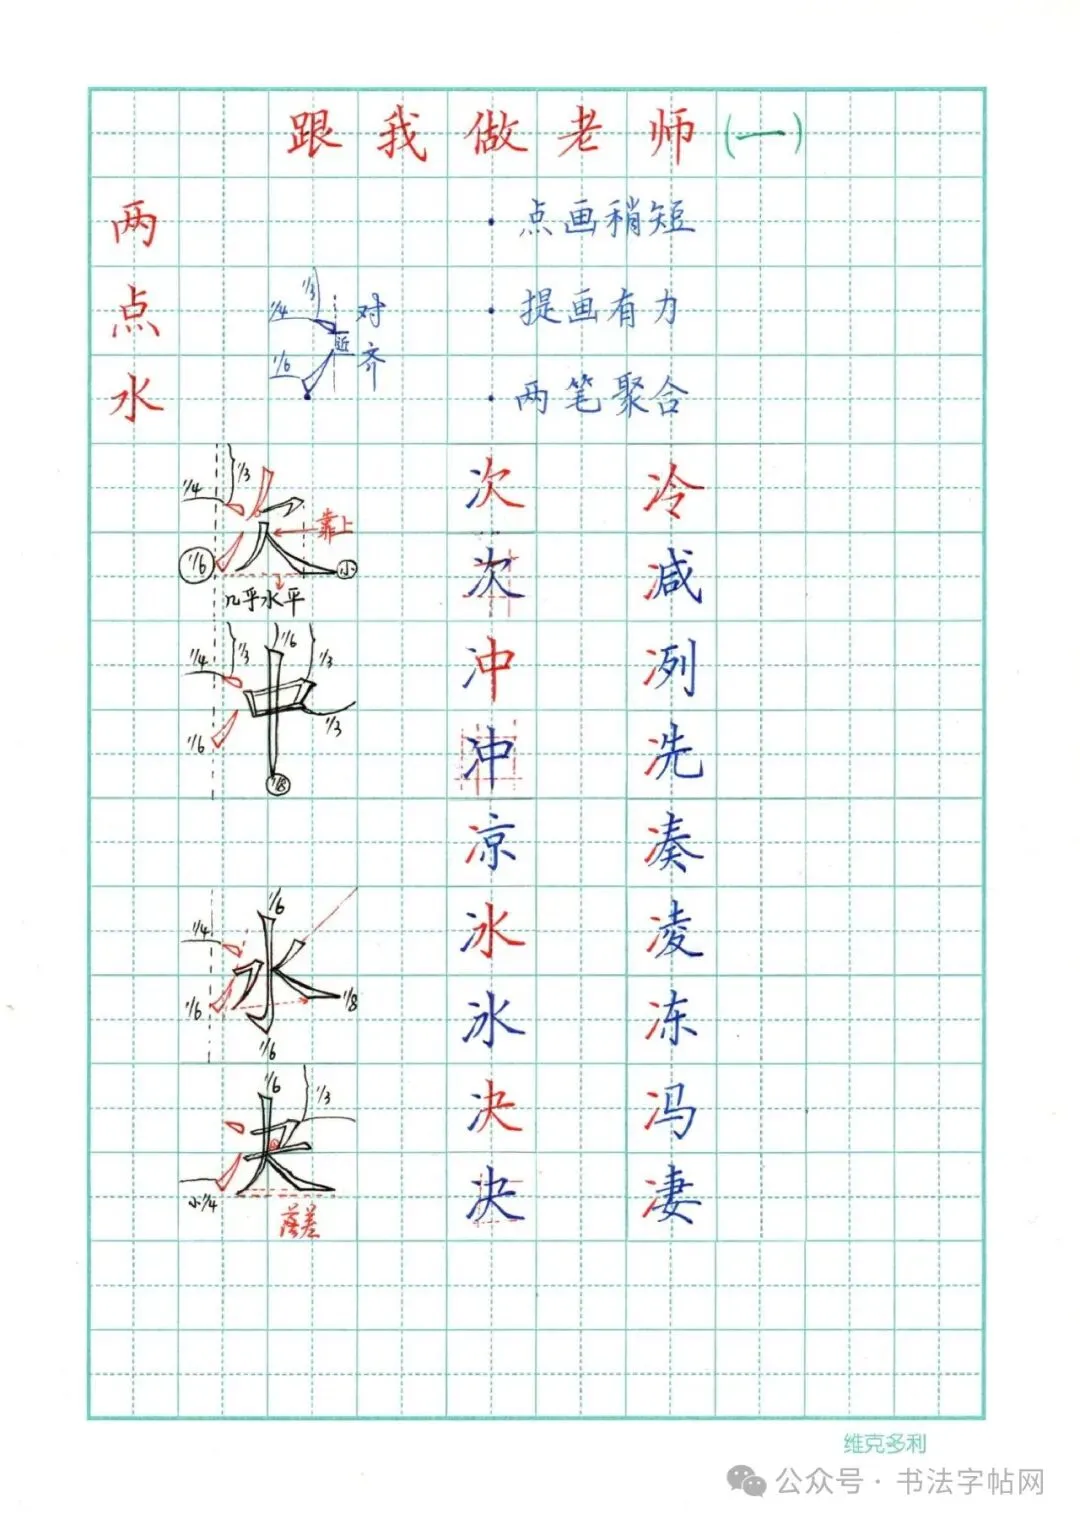 跟我做老师(一)
两点水
·点画稍短
·提画有力
·两笔聚合
1/3
1/4
对齐
近
1/6
1/4 1/3
次
靠上
1/6
小
几乎水平
次 冷
次 减
1/4 1/3 1/6 1/3
冲
1/3
1/6
1/8
冲 冽
冲 冼
凉 凑
1/6
1/4
冰
1/6
1/8
1/6
冰 凌
冰 冻
1/6
1/3
决
小1/4
落差
决 冯
决 凄
维克多利
公众号·书法字帖网